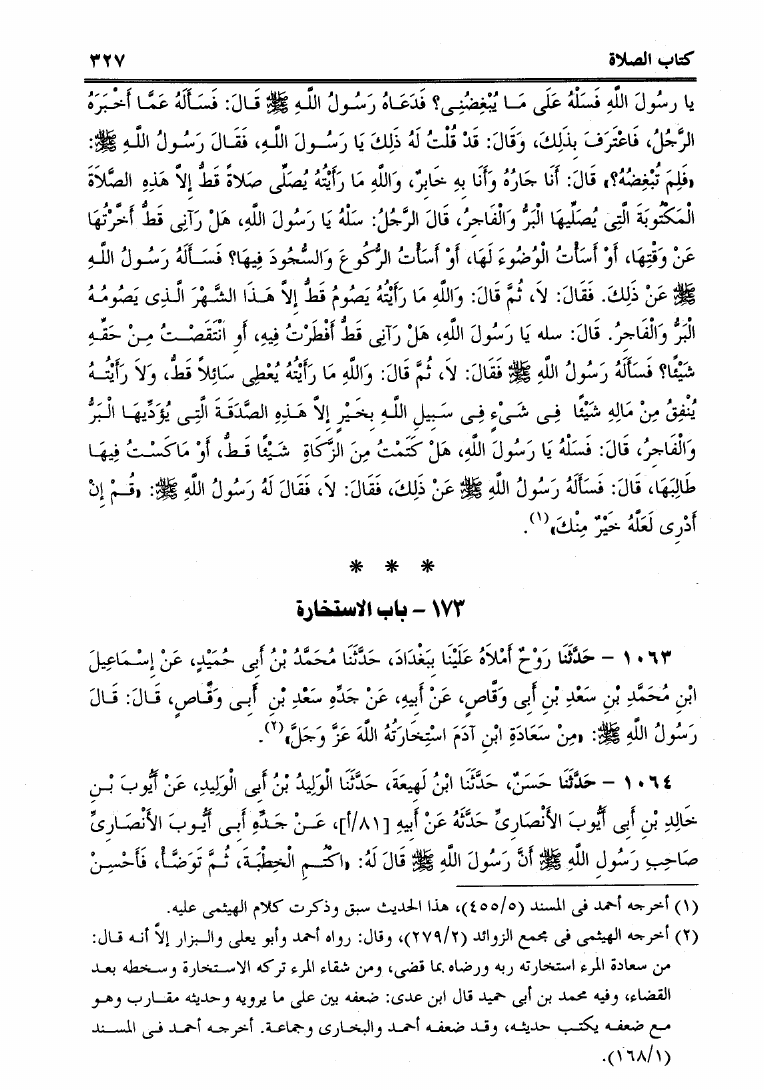 كتاب الصلاة ٣٢٧
يا رسولَ اللَّهِ فَسَلْهُ عَلَى مَا يُبْغِضُنِى؟ فَدَعَاهُ رَسُولُ اللَّهِ ﷺ قَالَ: فَسَأَلَهُ عَمَّا أَخْبَرَهُ
الرَّجُلُ، فَاعْتَرَفَ بِذَلِكَ، وَقَالَ: قَدْ قُلْتُ لَهُ ذَلِكَ يَا رَسُولَ اللَّهِ، فَقَالَ رَسُولُ اللَّهِ ﷺ:
«فَلِمَ تُبْغِضُهُ؟» قَالَ: أَنَا جَارُهُ وَأَنَا بِهِ خَابِرٌ، وَاللَّهِ مَا رَأَيْتُهُ يُصَلِّى صَلاَةً قَطُّ إِلاَّ هَذِهِ الصَّلاَةَ
الْمَكْتُوبَةَ الَّتِى يُصَلِّيهَا الْبَرُّ وَالْفَاجِرُ، قَالَ الرَّجُلُ: سَلْهُ يَا رَسُولَ اللَّهِ، هَلْ رَآنِى قَطُّ أَخَّرْتُهَا
عَنْ وَقْتِهَا، أَوْ أَسَأْتُ الْوُضُوءَ لَهَا، أَوْ أَسَأْتُ الرُّكُوعَ وَالسُّجُودَ فِيهَا؟ فَسَأَلَهُ رَسُولُ اللَّهِ
ﷺ عَنْ ذَلِكَ. فَقَالَ: لاَ، ثُمَّ قَالَ: وَاللَّهِ مَا رَأَيْتُهُ يَصُومُ قَطُّ إِلاَّ هَذَا الشَّهْرَ الَّذِى يَصُومُهُ
الْبَرُّ وَالْفَاجِرُ. قَالَ: سله يَا رَسُولَ اللَّهِ، هَلْ رَآنِى قَطُّ أَفْطَرْتُ فِيهِ، أَوِ انْتَقَصْتُ مِنْ حَقِّهِ
شَيْئًا؟ فَسَأَلَهُ رَسُولُ اللَّهِ ﷺ فَقَالَ: لاَ، ثُمَّ قَالَ: وَاللَّهِ مَا رَأَيْتُهُ يُعْطِى سَائِلاً قَطُّ، وَلاَ رَأَيْتُهُ
يُنْفِقُ مِنْ مَالِهِ شَيْئًا فِى شَىْءٍ فِى سَبِيلِ اللَّهِ بِخَيْرٍ إِلاَّ هَذِهِ الصَّدَقَةَ الَّتِى يُؤَدِّيهَا الْبَرُّ
وَالْفَاجِرُ، قَالَ: فَسَلْهُ يَا رَسُولَ اللَّهِ، هَلْ كَتَمْتُ مِنَ الزَّكَاةِ شَيْئًا قَطُّ، أَوْ مَاكَسْتُ فِيهَا
طَالِبَهَا، قَالَ: فَسَأَلَهُ رَسُولُ اللَّهِ ﷺ عَنْ ذَلِكَ، فَقَالَ: لاَ، فَقَالَ لَهُ رَسُولُ اللَّهِ ﷺ: «قُمْ إِنْ
أَدْرِى لَعَلَّهُ خَيْرٌ مِنْكَ»(١).
* * *
١٧٣ - باب الاستخارة
١٠٦٣ - حَدَّثَنَا رَوْحٌ أَمْلاَهُ عَلَيْنَا بِبَغْدَادَ، حَدَّثَنَا مُحَمَّدُ بْنُ أَبِى حُمَيْدٍ، عَنْ إِسْمَاعِيلَ
ابْنِ مُحَمَّدِ بْنِ سَعْدِ بْنِ أَبِى وَقَّاصٍ، عَنْ أَبِيهِ، عَنْ جَدِّهِ سَعْدِ بْنِ أَبِى وَقَّاصٍ، قَالَ: قَالَ
رَسُولُ اللَّهِ ﷺ: «مِنْ سَعَادَةِ ابْنِ آدَمَ اسْتِخَارَتُهُ اللَّهَ عَزَّ وَجَلَّ»(٢).
١٠٦٤ - حَدَّثَنَا حَسَنٌ، حَدَّثَنَا ابْنُ لَهِيعَةَ، حَدَّثَنَا الْوَلِيدُ بْنُ أَبِى الْوَلِيدِ، عَنْ أَيُّوبَ بْنِ
خَالِدِ بْنِ أَبِى أَيُّوبَ الأَنْصَارِىِّ حَدَّثَهُ عَنْ أَبِيهِ [٨١/أ]، عَنْ جَدِّهِ أَبِى أَيُّوبَ الأَنْصَارِىِّ
صَاحِبِ رَسُولِ اللَّهِ ﷺ أَنَّ رَسُولَ اللَّهِ ﷺ قَالَ لَهُ: «اكْتُمِ الْخِطْبَةَ، ثُمَّ تَوَضَّأْ، فَأَحْسِنْ
(١) أخرجه أحمد فى المسند (٤٥٥/٥)، هذا الحديث سبق وذكرت كلام الهيثمى عليه.
(٢) أخرجه الهيثمى فى مجمع الزوائد (٢٧٩/٢)، وقال: رواه أحمد وأبو يعلى والبزار إلاَّ أنه قال:
من سعادة المرء استخارته ربه ورضاه بما قضى، ومن شقاء المرء تركه الاستخارة وسخطه بعد
القضاء، وفيه محمد بن أبى حميد قال ابن عدى: ضعفه بين على ما يرويه وحديثه مقارب وهو
مع ضعفه يكتب حديثه، وقد ضعفه أحمد والبخارى وجماعة. أخرجه أحمد فى المسند
(١٦٨/١).